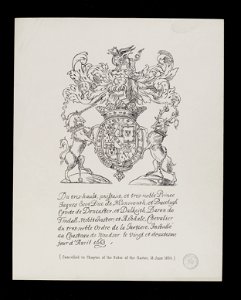 Du tres hault, puissant, et tres noble Prince
Jaques Scot Duc de Monmouth, et Buccleugh
Conte de Doncaster, et Dalkeith, Baron de
Tindall, Whitchester et Ashdale, Chevalier
du tres noble Ordre de la Jartiere, Installe
au Chasteau de Windsor le Vingt et deuxiesme
jour d'Avril 1663.
[ Cancelled in Chapter of the Order of the Garter, 18 June 1685. ]